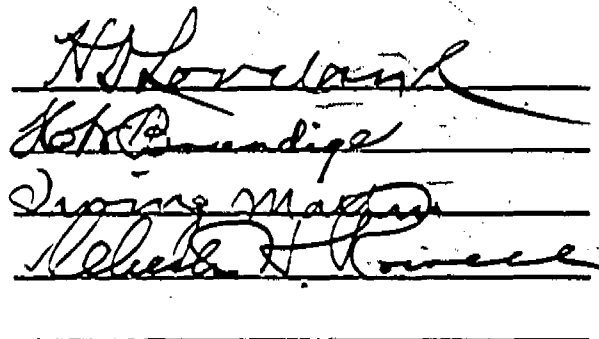 H D Loveland
H W Brundige
Irving Martin
Chester H. Rowell